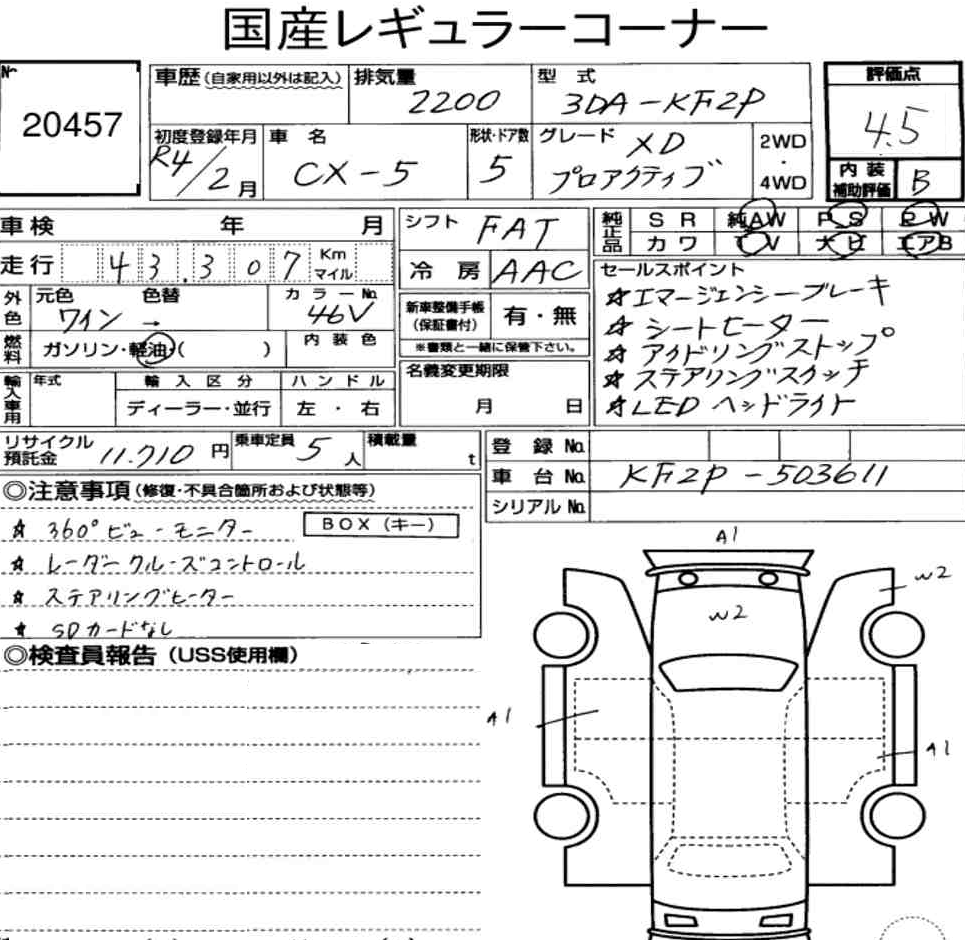 国産レギュラーコーナー
No
20457
車歴(自家用以外は記入)
排気量
2200
型式
3DA-KF2P
評価点
4.5
内装
補助評価
B
初度登録年月
R4/2月
車名
CX-5
形状・ドア数
5
グレード
XD
プロアクティブ
2WD
・
4WD
車検 年 月
走行 43.307 Km
マイル
シフト FAT
冷房 AAC
純正品
SR 純AW PS PW
カワ TV 大ビ エアB
外色
元色 色替
ワイン →
カラーNo.
46V
燃料
ガソリン・軽油・( )
内装色
新車整備手帳
(保証書付)
有・無
※書類と一緒に保管下さい。
輸入車用
年式
輸入区分
ディーラー・並行
ハンドル
左・右
名義変更期限
月 日
セールスポイント
☆エマージェンシーブレーキ
☆シートヒーター
☆アイドリングストップ
☆ステアリングスイッチ
☆LEDヘッドライト
リサイクル
預託金
11.710円
乗車定員 5人
積載量 t
登録No.
車台No. KF2P-503611
シリアルNo.
◎注意事項(修復・不具合箇所および状態等)
☆ 360°ビューモニター
BOX(キー)
☆ レーダークルーズコントロール
☆ ステアリングヒーター
☆ SDカードなし
◎検査員報告(USS使用欄)
A1
W2
W2
A1
A1